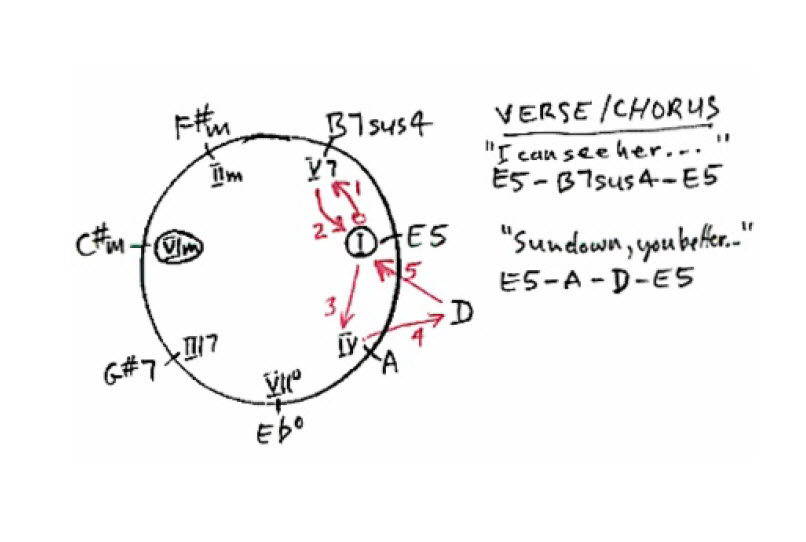 F#m
B7sus4
IIm
V7
1
2
0
C#m
VIm
I
E5
5
3
D
4
IV
A
III7
G#7
VII°
Eb°
VERSE/CHORUS
"I can see her..."
E5-B7sus4-E5
"Sundown, you better..."
E5-A-D-E5